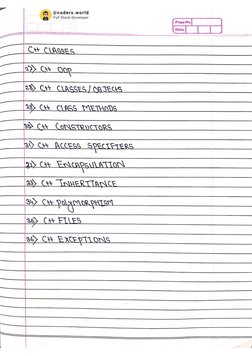 @coders.world
Full Stack Developer
Page No.
Date
C++ CLASSES
27> C++ OOP
28> C++ CLASSES/OBJECTS
29> C++ CLASS METHODS
30> C++ CONSTRUCTORS
31> C++ ACCESS SPECIFIERS
32> C++ ENCAPSULATION
33> C++ INHERITANCE
34> C++ POLYMORPHISM
35> C++ FILES
36> C++ EXCEPTIONS